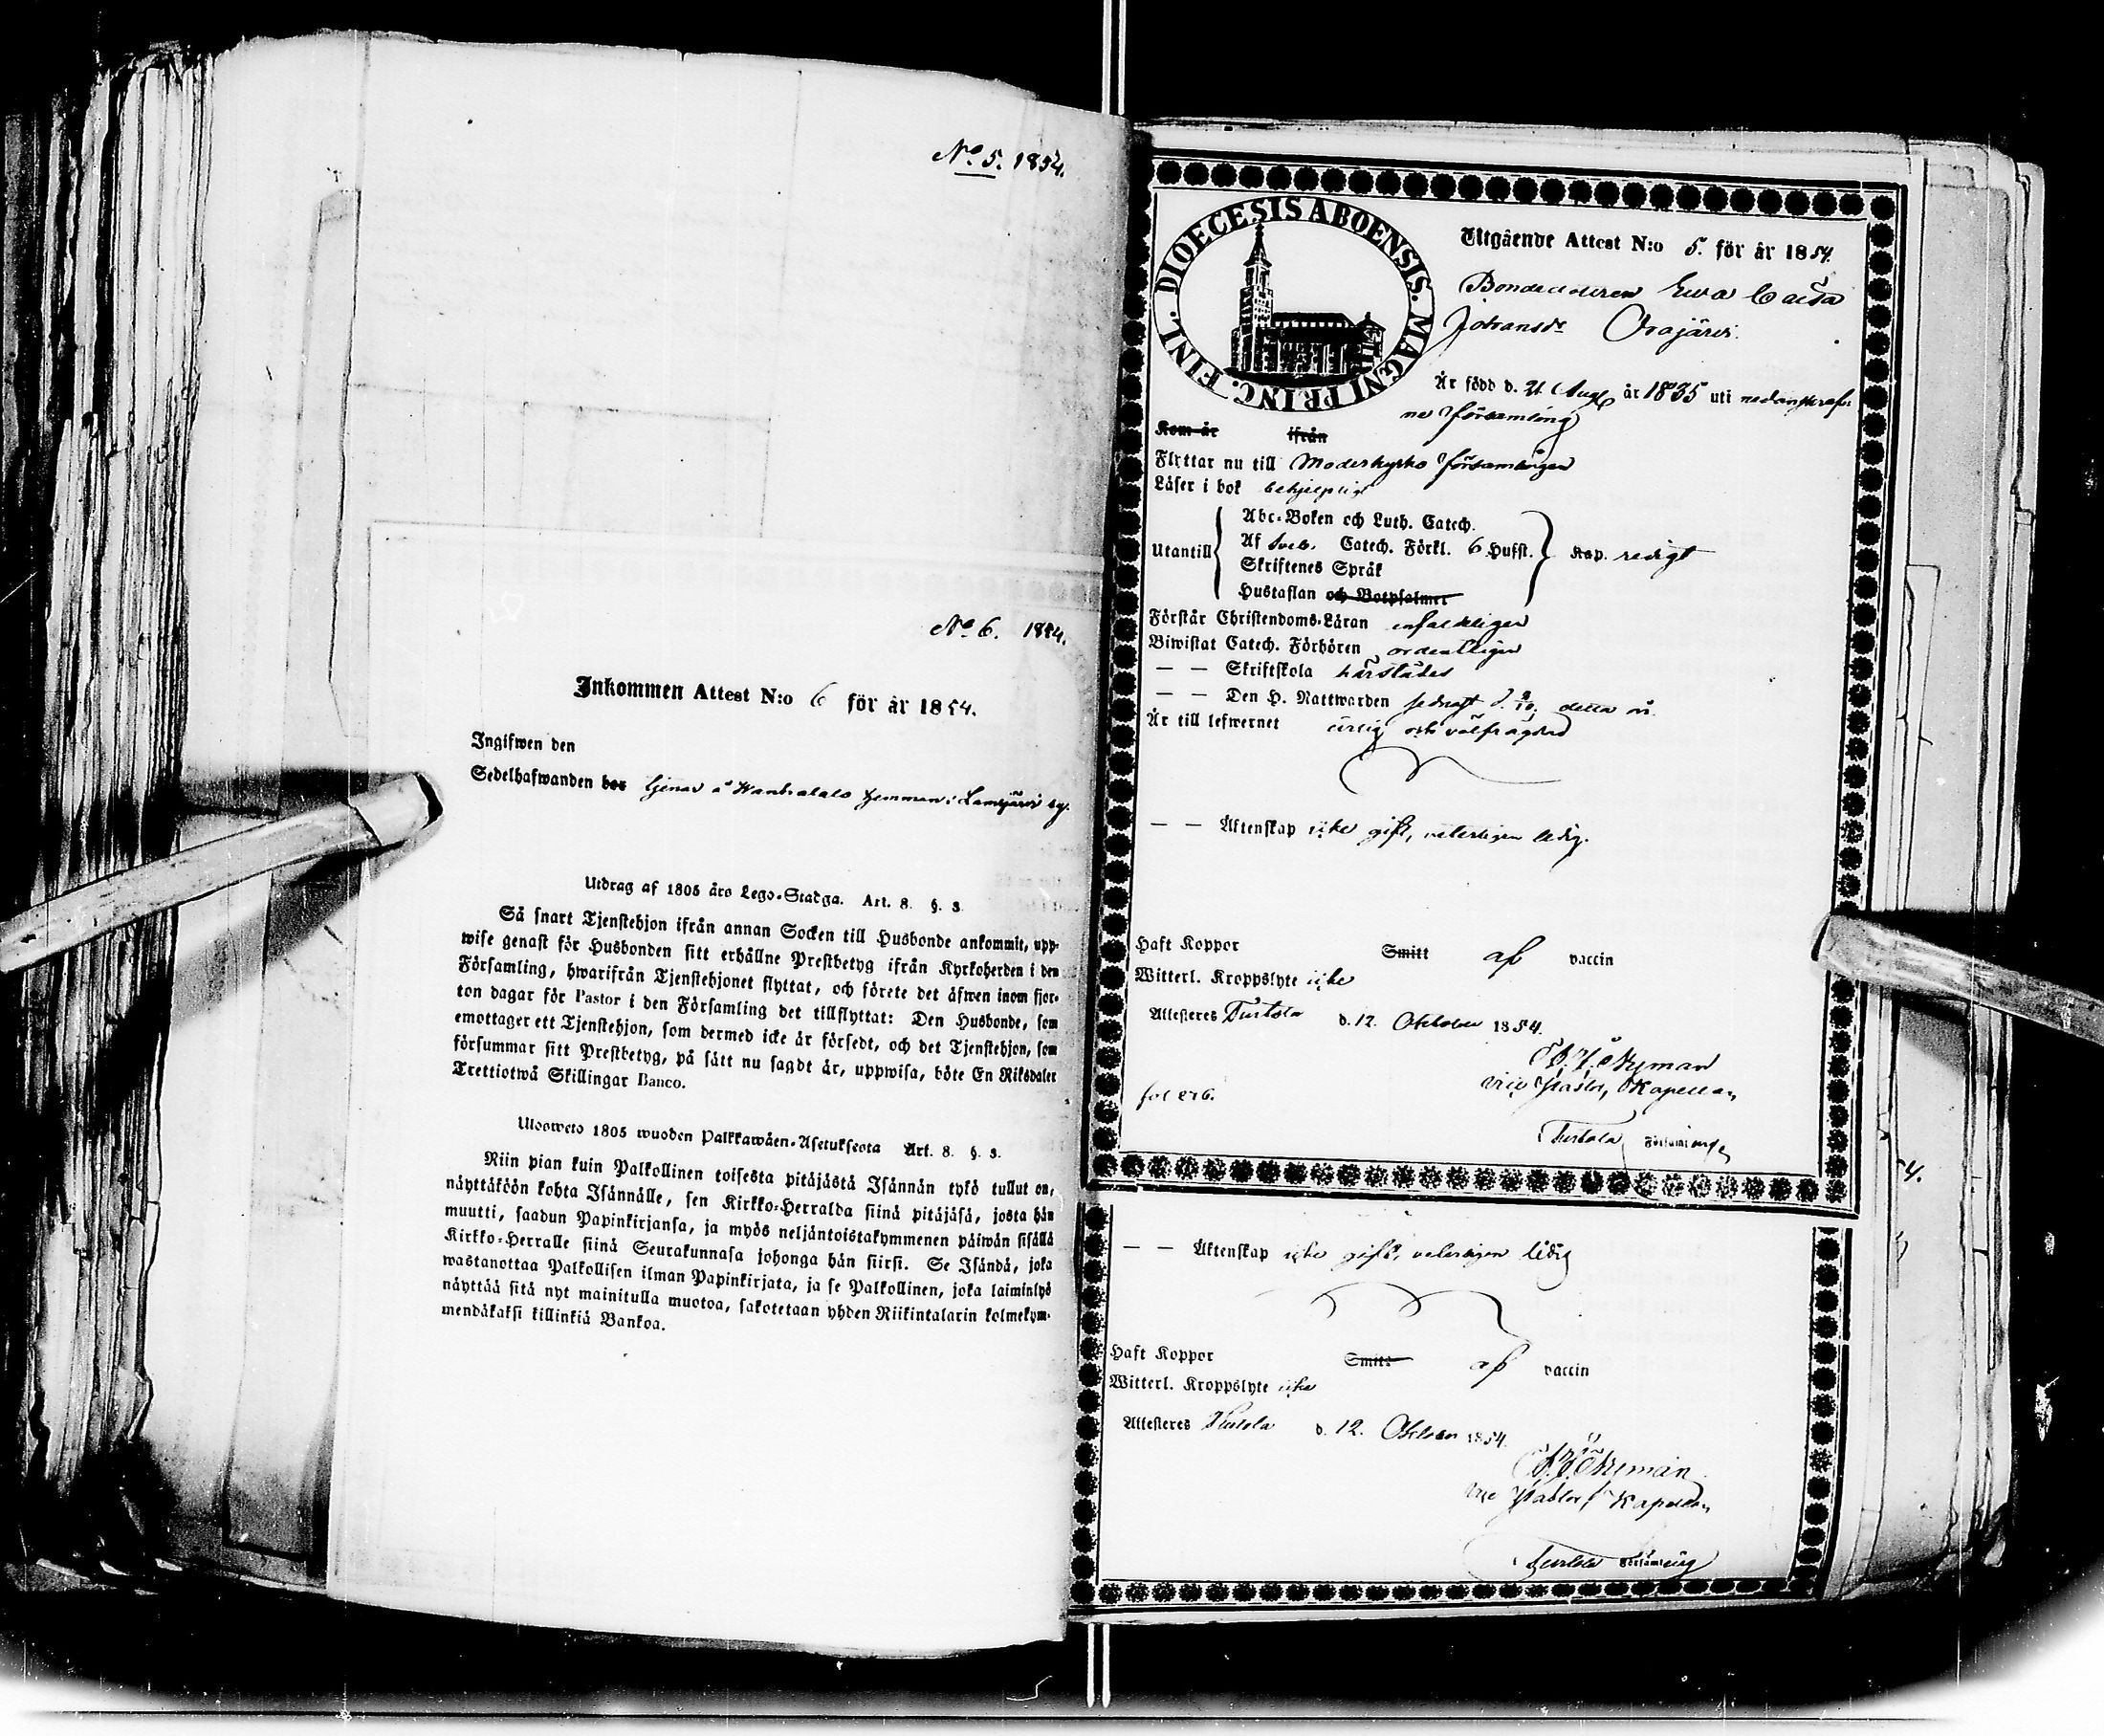 No 5. 1854.
No 6. 1854.
Inkommen Attest N:o 6 för år 1854.
Ingifwen den
Sedelhafwanden bor tjenar å hemman i by.
Utdrag af 1805 års Lego-Stadga. Art. 8. §. 3.
Så snart Tjenstehjon ifrån annan Socken till Husbonde ankommit, upp-
wise genast för Husbonden sitt erhållne Prestbetyg ifrån Kyrkoherden i den
Församling, hwarifrån Tjenstehjonet flyttat, och förete det äfwen inom fjor-
ton dagar för Pastor i den Församling det tillflyttat: Den Husbonde, som
emottager ett Tjenstehjon, som dermed icke är försedt, och det Tjenstehjon, som
försummar sitt Prestbetyg, på sätt nu sagdt är, uppwisa, böte En Riksdaler
Trettiotwå Skillingar Banco.
Ulosweto 1805 wuoden Palkkawäen-Asetuksesta Art. 8. §. 3.
Niin pian kuin Palkollinen toisesta pitäjästä Isännän tykö tullut on,
näyttäköön kohta Isännälle, sen Kirkko-Herralda siinä pitäjäsä, josta hän
muutti, saadun Papinkirjansa, ja myös neljäntoistakymmenen päiwän sisällä
Kirkko-Herralle siinä Seurakunnasa johonga hän siirsi. Se Isändä, joka
wastanottaa Palkollisen ilman Papinkirjata, ja se Palkollinen, joka laiminlyö
näyttää sitä nyt mainitulla muotoa, sakotetaan yhden Riikintalarin kolmekym-
mendäkaksi killinkiä Bankoa.
DIOECESIS ABOENSIS. MAGNI PRINC. FINL.
Utgående Attest N:o 5. för år 1854.
Bondedotteren Ewa Caisa
Johansdr Orajärvi.
Är född d. 21 Aug är 1835 uti nedanskref-
ne församling
Kom år ifrån
Flyttar nu till Moderkyrko församlingen
Läser i bok behjelpligt
Utantill
Abc-Boken och Luth. Catech.
Af Sveb. Catech. Förkl. 6 Hufst.
Skriftenes Språk
Hustaflan och Botpsalmer
Kap. redigt
Förstår Christendoms-Läran enfaldeligen
Biwistat Catech. Förhören ordentligen
— — Skriftskola härstädes
— — Den H. Nattwarden sednast d. detta år.
Är till lefwernet ärlig och välfrägdad
— — Äktenskap icke gift, veterligen ledig.
Haft Koppor Smitt af vaccin
Witterl. Kroppslyte icke
Attesteres Turtola d. 12. Oktober 1854.
Nyman
vice Pastor, Kapellan
fol 276.
Turtola Församling
— — Äktenskap icke gift, veterligen ledig
Haft Koppor Smitt af vaccin
Witterl. Kroppslyte icke
Attesteres Turtola d. 12. Oktober 1854.
Nyman
vice Pastor, Kapellan
Turtola Församling